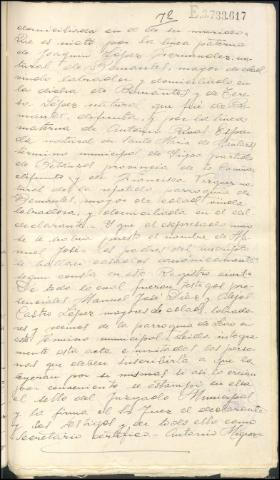 72 E 2733.617
domiciliada en el de su marido.
Que es nieto por la linea paterna
de Joaquin López Fernandez, na-
tural de Bemantes, mayor de edad
viudo labrador y domiciliado en
la dicha de Bemantes y de
López natural que fué de
difunta, y por la linea
materna de Antonio
natural de Santa Maria de
termino municipal de partido
de Betanzos provincia de la Coruña,
difunto, y de Francisca na-
tural de la repetida parroquia de
Bemantes, mayor de edad, viuda
labradora, y domiciliada en el del
declarante. Y que al expresado niño
se le habia puesto el nombre de Ma-
nuel José. Y padres del inscrito
se hallan casados canonicamente
segun consta en este Registro civil.
De todo lo cual fueron testigos pre-
senciales Manuel José Diaz y Angel
Castro López mayores de edad, labrado-
res y vecinos de la parroquia de en
este termino municipal. Leida integra-
mente esta acta é invitadas las perso-
nas que deben suscribirla a que la
leyeran por si mismas si asi lo creian
por conveniente se estampó en ella
el sello del Juzgado Municipal
y la firma el Sr. Juez el declarante
y los testigos, y de todo ello como
Secretario Certifico.= Antonio